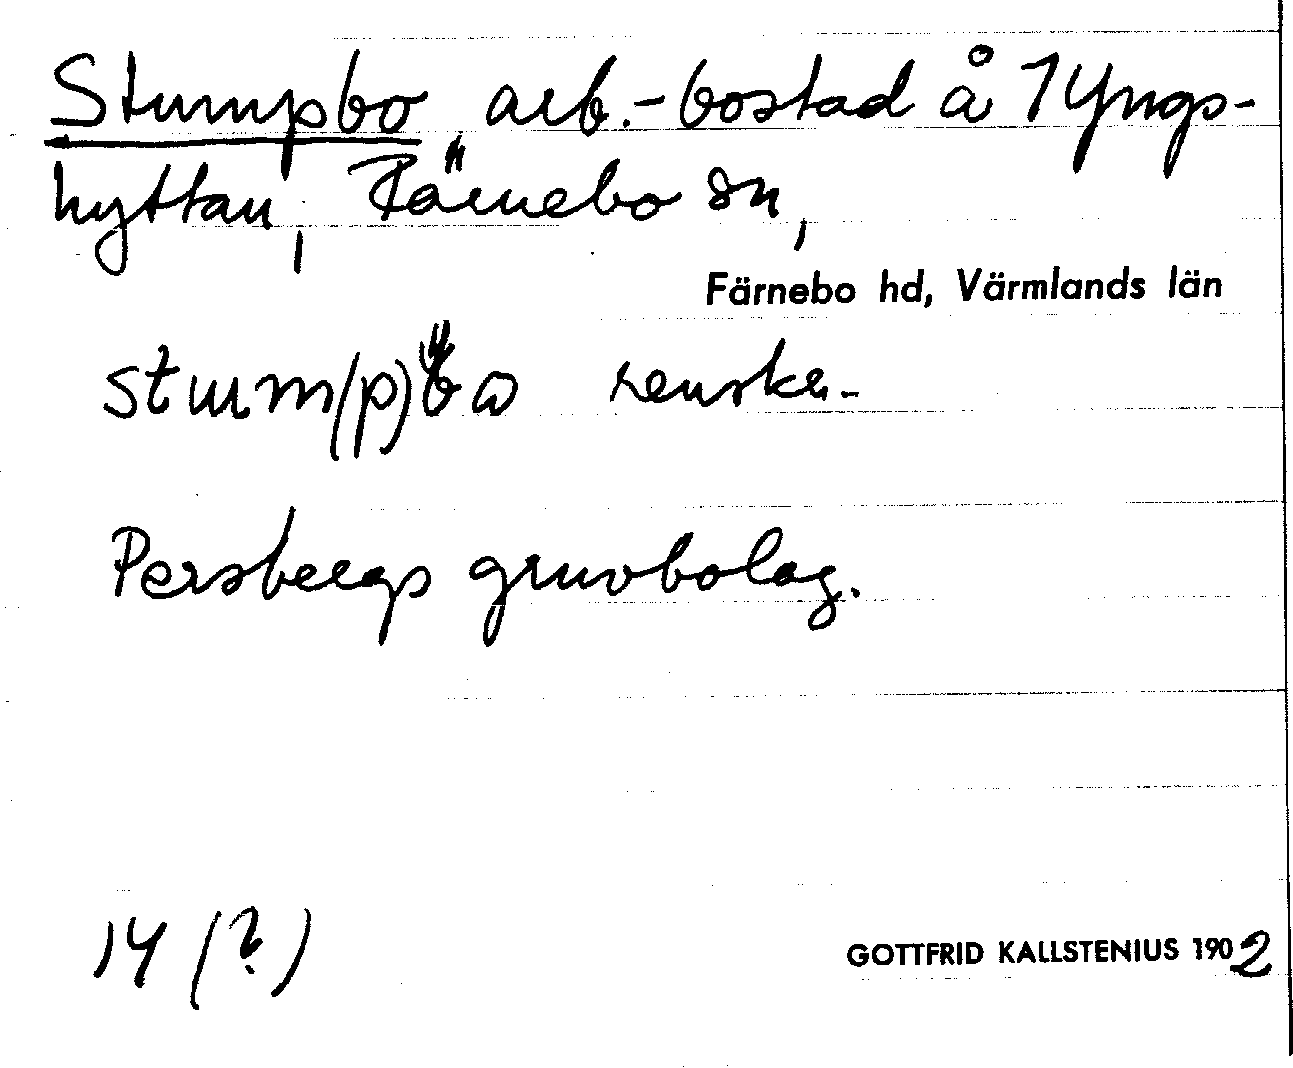 Stumpbo, arb.-bostad å 1 Yngs-
hyttan, Färnebo sn,
Färnebo hd, Värmlands län
stum(p)bω
Persbergs gruvbolag.
14 (?)
GOTTFRID KALLSTENIUS 1902